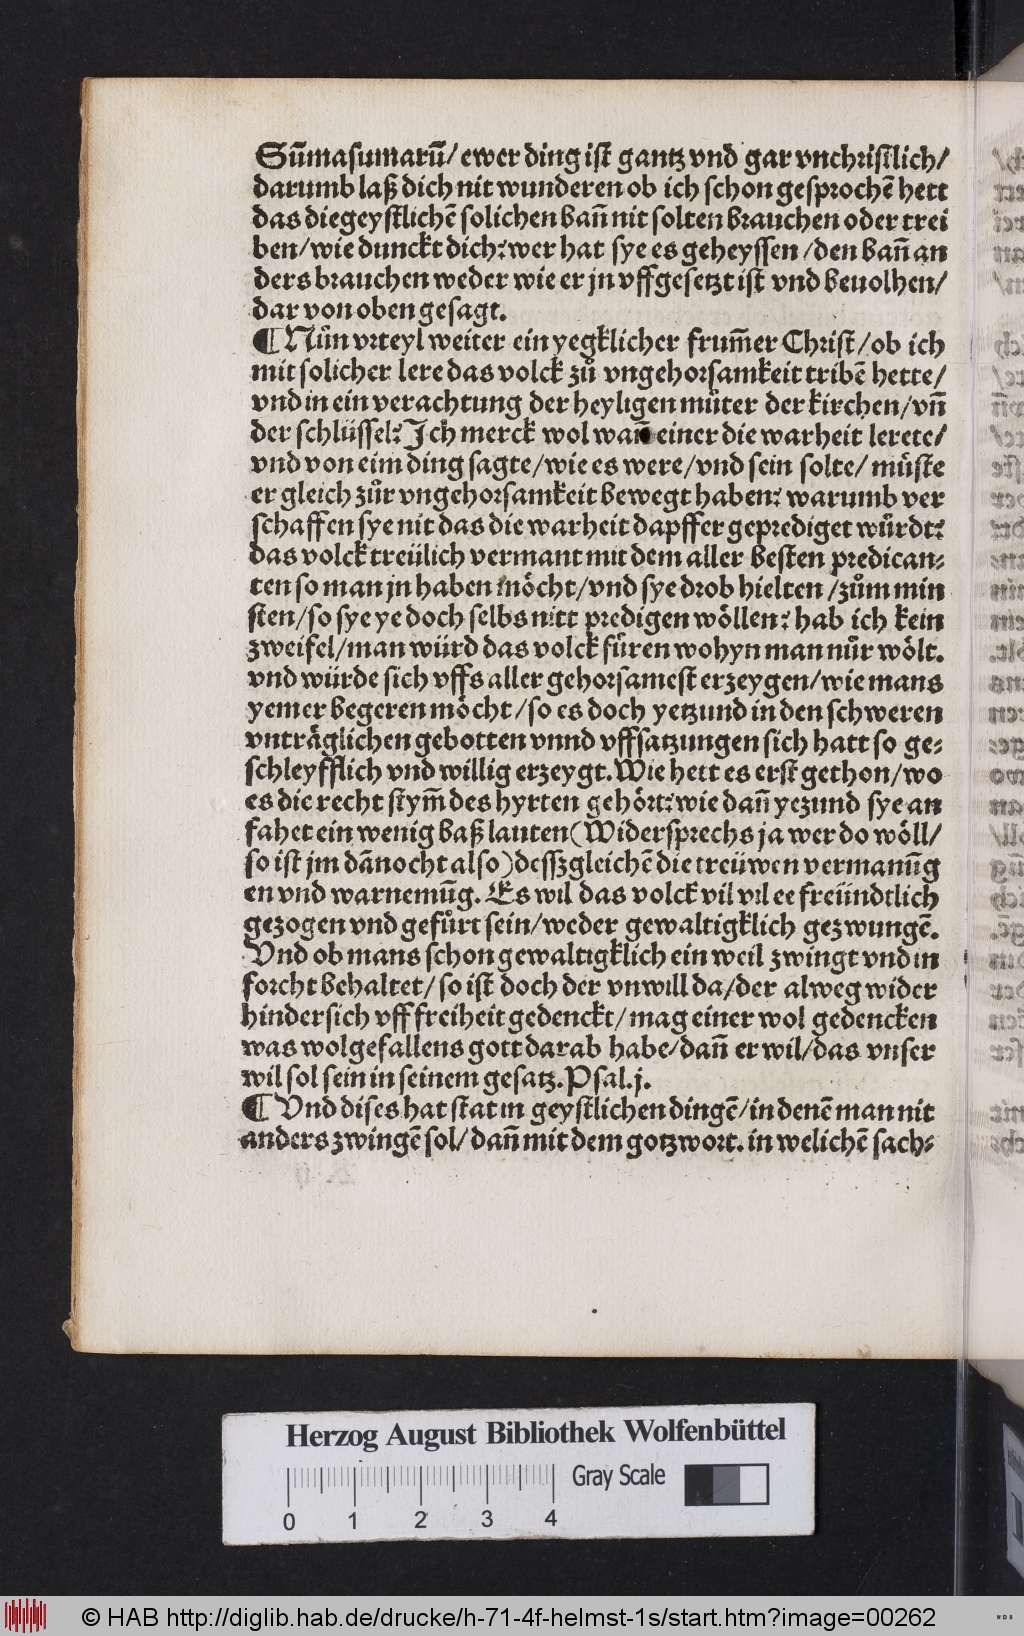 Sūmasumarū/ ewer ding ist gantz vnd gar vnchristlich/
darumb laß dich nit wunderen ob ich schon gesprochē hett
das die geystlichē solichen bañ nit solten brauchen oder trei
ben/ wie dunckt dich? wer hat sye es geheyssen/ den bañ an
ders brauchen weder wie er jn vffgesetzt ist vnd beuolhen/
dar von oben gesagt.
¶ Nůn vrteyl weiter ein yegklicher frum̄er Christ/ ob ich
mit solicher lere das volck zů vngehorsamkeit tribē hette/
vnd in ein verachtung der heyligen můter der kirchen/ vñ
der schlüssel? Ich merck wol wañ einer die warheit lerete/
vnd von eim ding sagte/ wie es were/ vnd sein solte/ müste
er gleich zůr vngehorsamkeit bewegt haben? warumb ver
schaffen sye nit das die warheit dapffer geprediget würdt?
das volck treülich vermant mit dem aller besten predican⸗
ten so man jn haben möcht/ vnd sye drob hielten/ zům min
sten/ so sye ye doch selbs nitt predigen wöllen? hab ich kein
zweifel/ man würd das volck füren wohyn man nůr wölt.
vnd würde sich vffs aller gehorsamest erzeygen/ wie mans
yemer begeren möcht/ so es doch yetzund in den schweren
vnträglichen gebotten vnnd vffsatzungen sich hatt so ge⸗
schleyfflich vnd willig erzeygt. Wie hett es erst gethon/ wo
es die recht stym̄ des hyrten gehört? wie dañ yezund sye an
fahet ein wenig baß lauten (Widersprechs ja wer do wöll/
so ist jm dānocht also) desszgleichē die treüwen vermanūg
en vnd warnemūg. Es wil das volck vil vil ee freündtlich
gezogen vnd gefůrt sein/ weder gewaltigklich gezwungē.
Vnd ob mans schon gewaltigklich ein weil zwingt vnd in
forcht behaltet/ so ist doch der vnwill da/ der alweg wider
hindersich vff freiheit gedenckt/ mag einer wol gedencken
was wolgefallens gott darab habe/ dañ er wil/ das vnser
wil sol sein in seinem gesatz. Psal. j.
¶ Vnd dises hat stat in geystlichen dingē/ in denē man nit
anders zwingē sol/ dañ mit dem gotzwort. in welichē sach⸗
Herzog August Bibliothek Wolfenbüttel
Gray Scale
0 1 2 3 4
© HAB http://diglib.hab.de/drucke/h-71-4f-helmst-1s/start.htm?image=00262